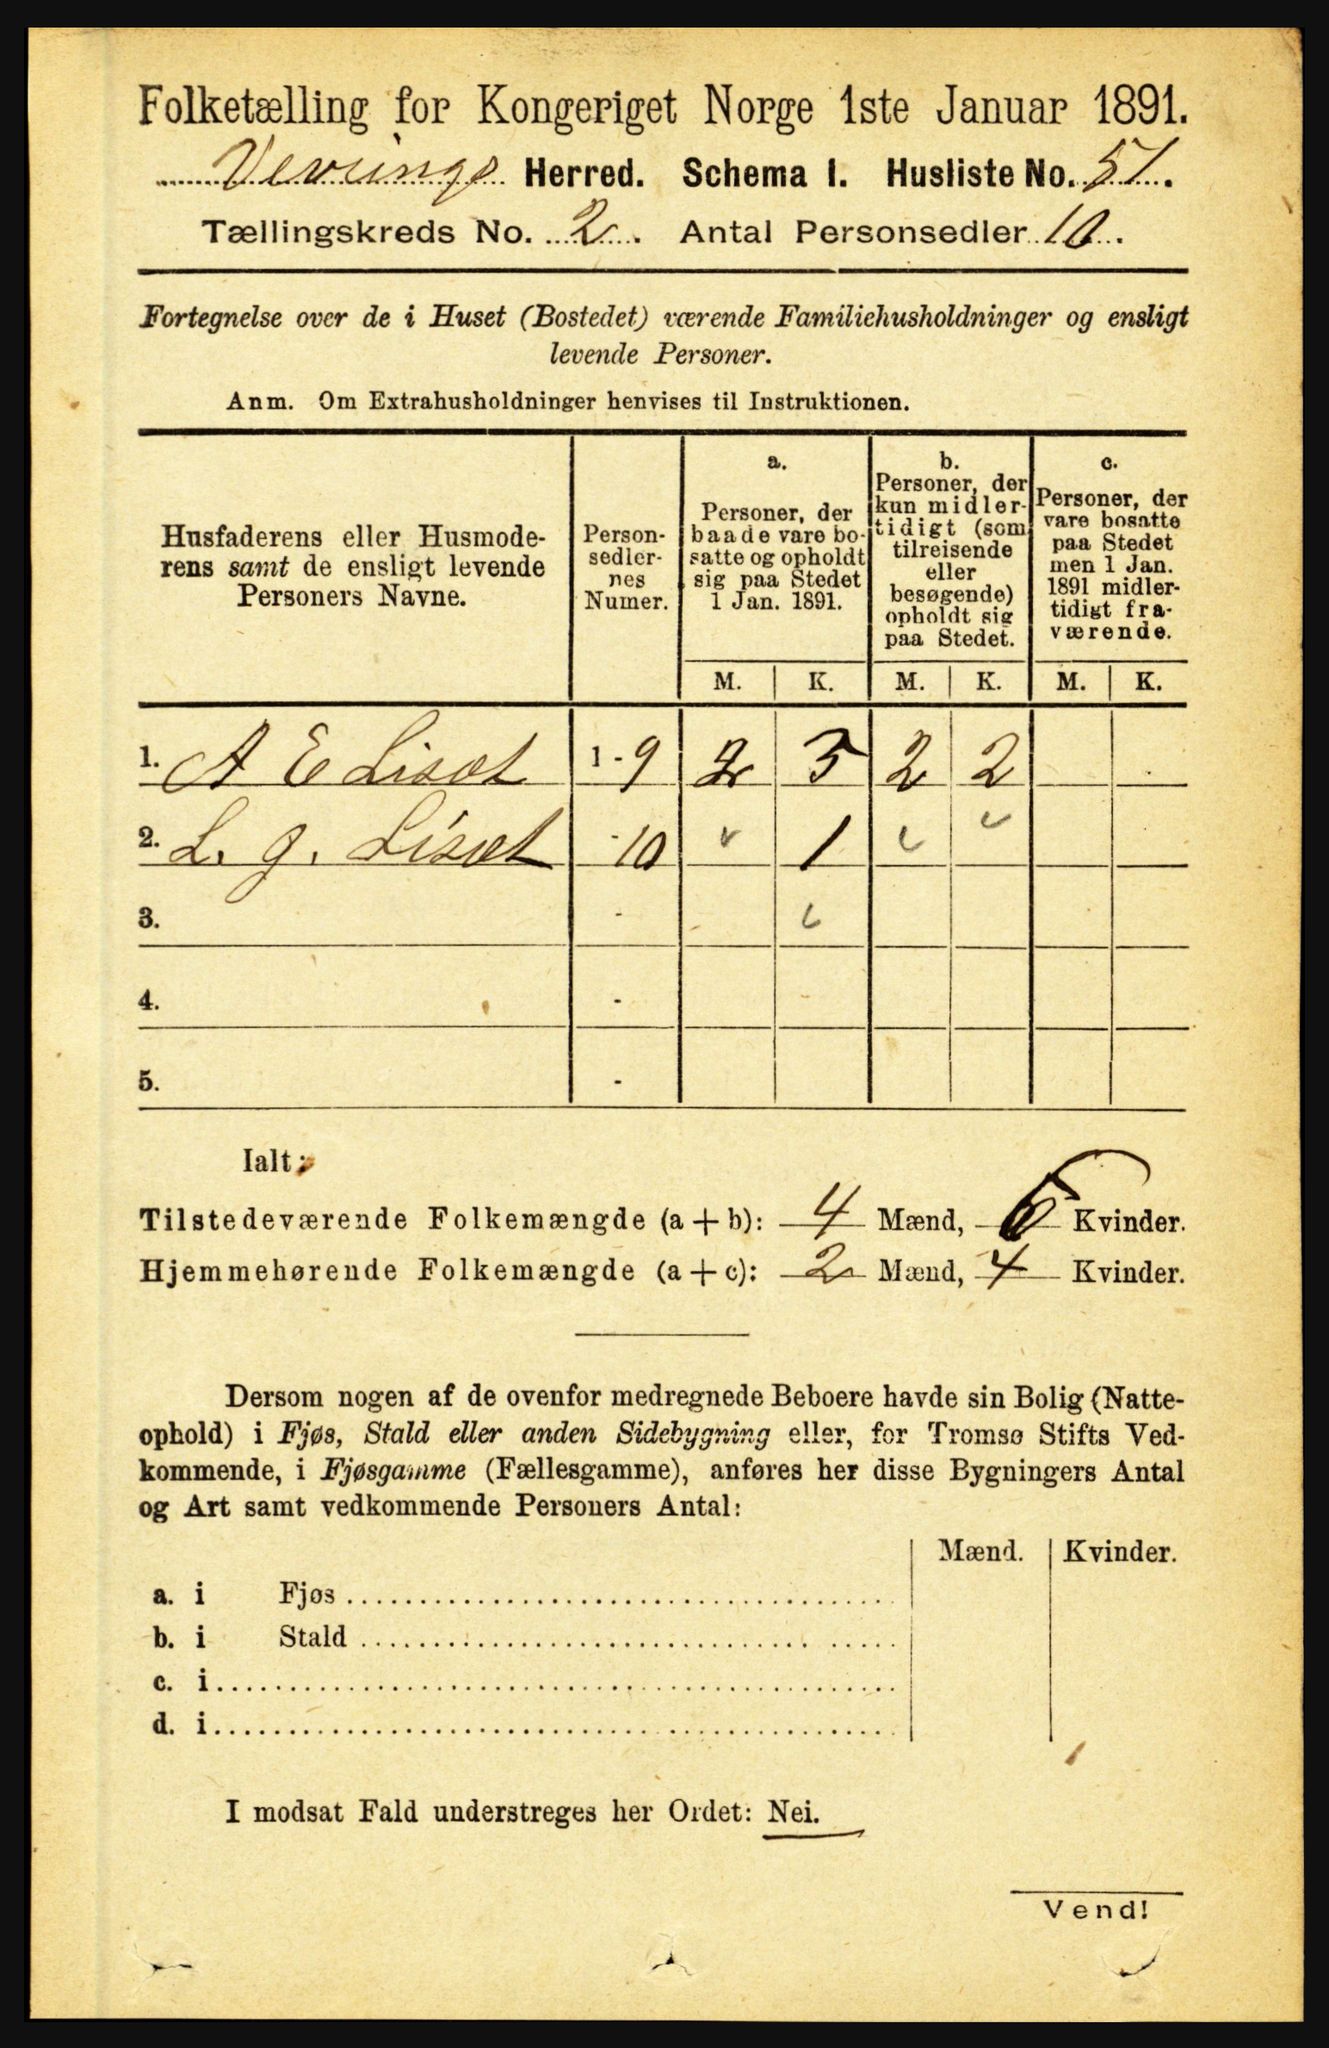 Folketælling for Kongeriget Norge 1ste Januar 1891.
Vevrings Herred. Schema I. Husliste No. 51.
Tællingskreds No. 2. Antal Personsedler 10.
Fortegnelse over de i Huset (Bostedet) værende Familiehusholdninger og ensligt
levende Personer.
Anm. Om Extrahusholdninger henvises til Instruktionen.
Husfaderens eller Husmode-
rens samt de ensligt levende
Personers Navne.
Person-
sedler-
nes
Numer.
a.
Personer, der
baade vare bo-
satte og opholdt
sig paa Stedet
1 Jan. 1891.
b.
Personer, der
kun midler-
tidigt (som
tilreisende
eller
besøgende)
opholdt sig
paa Stedet.
c.
Personer, der
vare bosatte
paa Stedet
men 1 Jan.
1891 midler-
tidigt fra-
værende.
M. K. M. K. M. K.
1. A E Lisæt 1 - 9 2 3 2 2
2. L. J. Lisæt - 10 1
3. -
4. -
5. -
Ialt:
Tilstedeværende Folkemængde (a + b): 4 Mænd, 6 Kvinder.
Hjemmehørende Folkemængde (a + c): 2 Mænd, 4 Kvinder.
Dersom nogen af de ovenfor medregnede Beboere havde sin Bolig (Natte-
ophold) i Fjøs, Stald eller anden Sidebygning eller, for Tromsø Stifts Ved-
kommende, i Fjøsgamme (Fællesgamme), anføres her disse Bygningers Antal
og Art samt vedkommende Personers Antal:
Mænd. Kvinder.
a. i Fjøs
b. i Stald
c. i
d. i
I modsat Fald understreges her Ordet: Nei.
Vend!